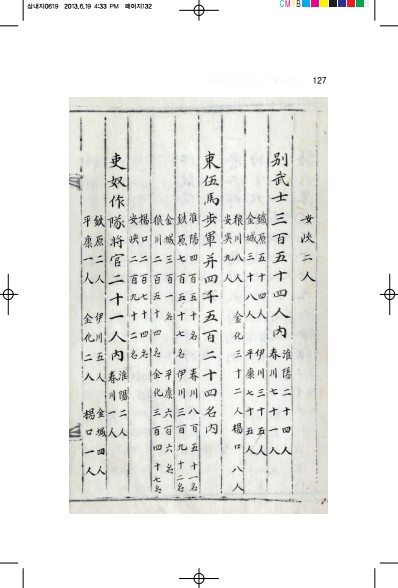 삼내지0619 2013.6.19 4:33 PM 페이지132
CMYB
127
安峽二人
別武士三百五十四人內
淮陽二十四人
春川七十一人
鐵原五十四人 伊川三十五人
金城三十八人 平康七十五人
狼川八人 金化三十二人 楊口八人
安峽九人
東伍馬步軍并四千五百二十四名內
淮陽四百五十名 春川八百五十一名
鐵原七百五十七名 伊川三百九十二名
金城三百一名 平康六百六名
狼川二百五十四名 金化三百四十七名
楊口二百七十四名
安峽二百九十二名
吏奴作隊將官二十一人內
淮陽二人
春川一人
鐵原二人 伊川五人 金城四人
平康一人 金化二人 楊口一人